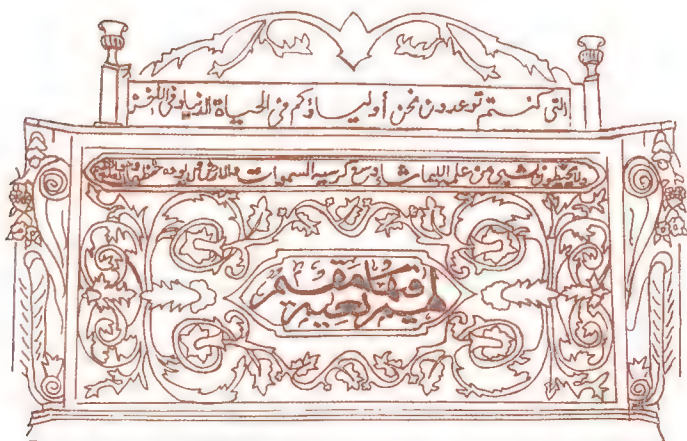 التى كنتم توعدون نحن أولياؤكم فى الحياة الدنيا وفى الاخرة
ولا يحيطون بشىء من علمه الا بما شاء وسع كرسيه السموات والارض ولا يوده حفظهما وهو العلى العظيم
لهم فيها نعيم مقيم